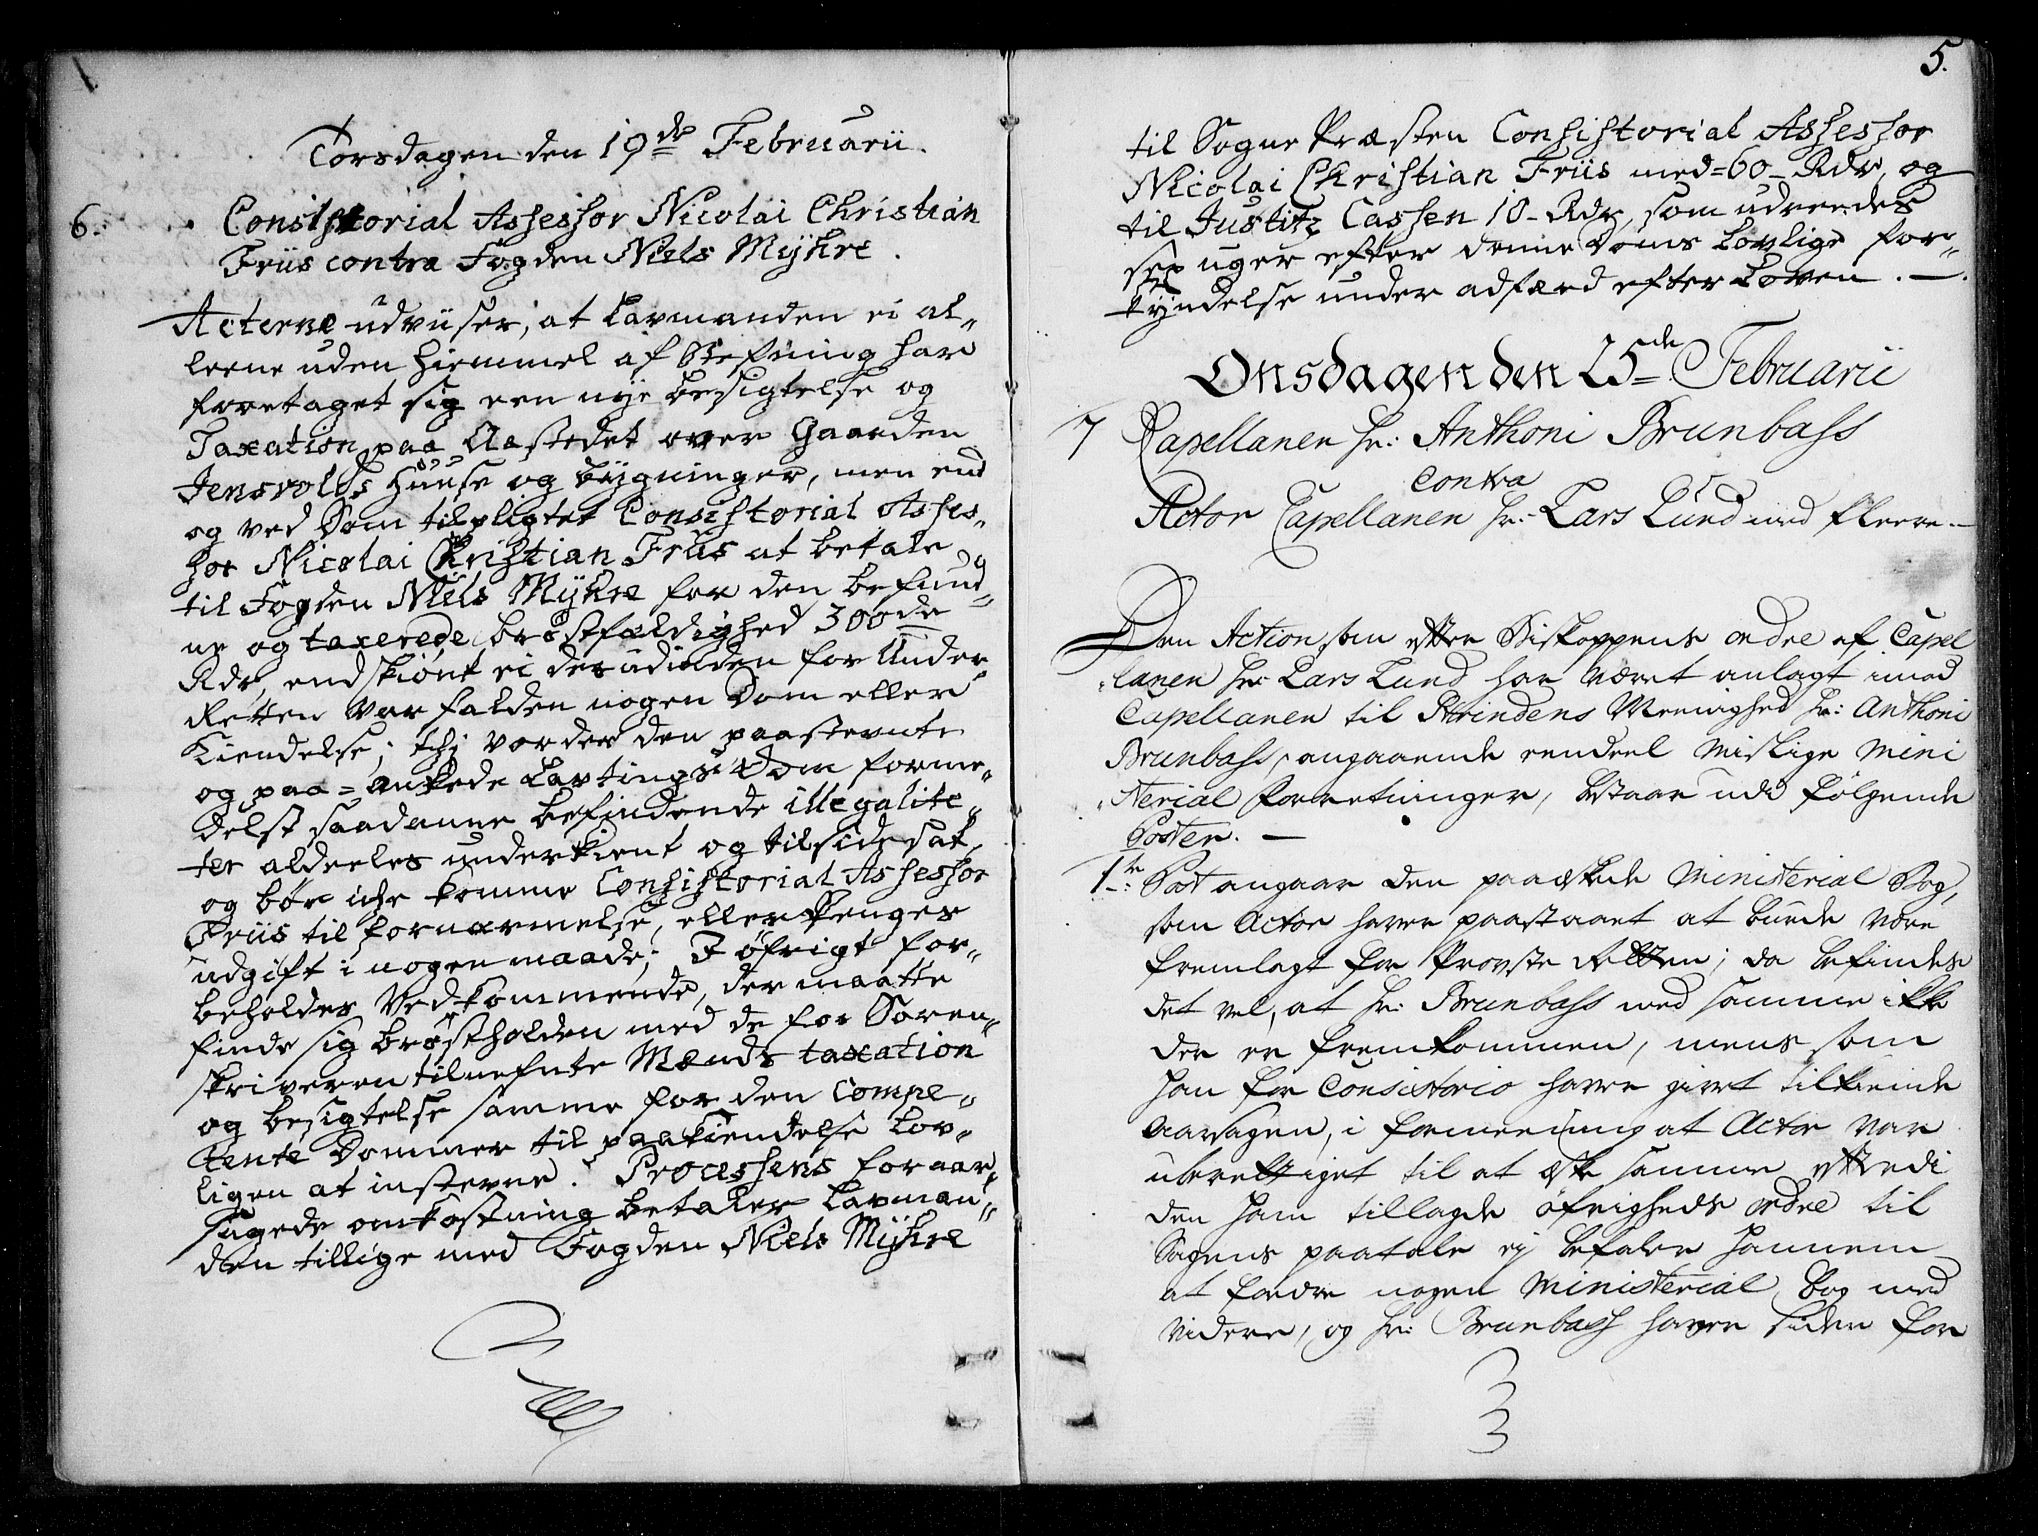 Torsdagen den 19de Februarii.
6. Consistorial Assessor Nicolai Christian
Friis contra Fogden Niels Mÿhre.
Acterne udviiser, at Lavmanden ei al„
leene uden Hiemmel af Stefning har
foretaget sig een nÿe besigtelse og
Taxation paa Aastedet over Gaarden
Jensvolds Huuse og bÿgninger, men end
og ved Dom tilpligtet Consistorial Asses„
sor Nicolai Christian Friis at betale
til Fogden Niels Mÿhre for den befund„
ne og taxerede brøstfældighed 300de
Rdr, endskiønt ei desudinden for Under
Retten var falden nogen Dom eller
Kiendelse; thi vorder den paastevnte
og paa=ankede Lavtings Dom forme„
delst saadanne befindende illegalite„
ter aldeeles underkient og tilsidesat,
og bør icke komme Consistorial Assessor
Friis til fornærmelse, eller Penges
udgift i nogen maade; I øfrigt for„
beholdes Vedkommende, der maatte
finde sig brøstholden med de for Soren„
skriveren tilnefnte Mænds taxation
og besigtelse samme for den Compe„
tente Dommer til paakiendelse Lov„
ligen at insteevne. Processens foraar„
sagede omkostning betaler Lavman„
den tillige med Fogden Niels Mÿhre
5.
til Sogne Præsten Consistorial Assessor
Nicolai Christian Friis med=60_Rdr, og
til Justitz Cassen 10_Rdr, som udreedes
sex uger efter denne Doms lovlige for„
kÿndelse under adfærd efter Loven.
Onsdagen den 25de Februarii
7 Capellanen Hr: Anthoni Brunbass
contra
Actor Capellanen Hr: Lars Lund med fleere.
Den Action som efter Biskoppens ordre af Capel
„lanen Hr: Lars Lund har været anlagt imod
Capellanen til Strindens Meenighed Hr: Anthoni
Brunbass, angaaende eendeel mislige Mini
„sterial forretninger, bestaar udi følgende
Poster.
1te: Post angaar den paaæskede Ministerial Bog,
som Actor haver paastaaet at burde være
fremlagt for Provste Retten; da befindes
det vel, at Hr: Brunbass med samme ikke
der er fremkommen, mens som
han for Consistorio haver givet tilkiende
Aarsagen, i formeening at Actor var
uberettiget til at æske samme efterdi
den ham tillagde øfrigheds ordre til
Sagens paatale ej befaler hannem
at fordre nogen Ministerial Bog med
videre, og Hr: Brunbass haver siden for